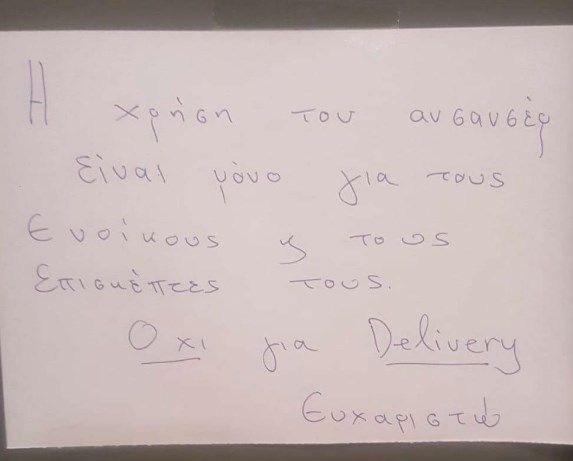 Η χρήση του ανσανσέρ
είναι μόνο για τους
Ενοίκους ϗ τους
Επισκέπτες τους.
Οχι για Delivery
Ευχαριστώ